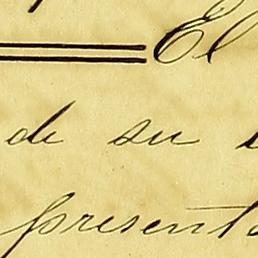 El
de su
presenta